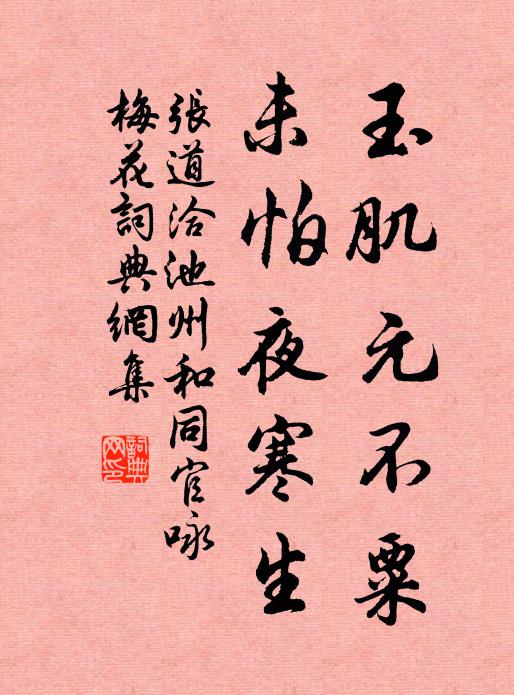 玉肌元不粟
未怕夜寒生
張道洽池州和同官咏
梅花詞典網集
詞典网印